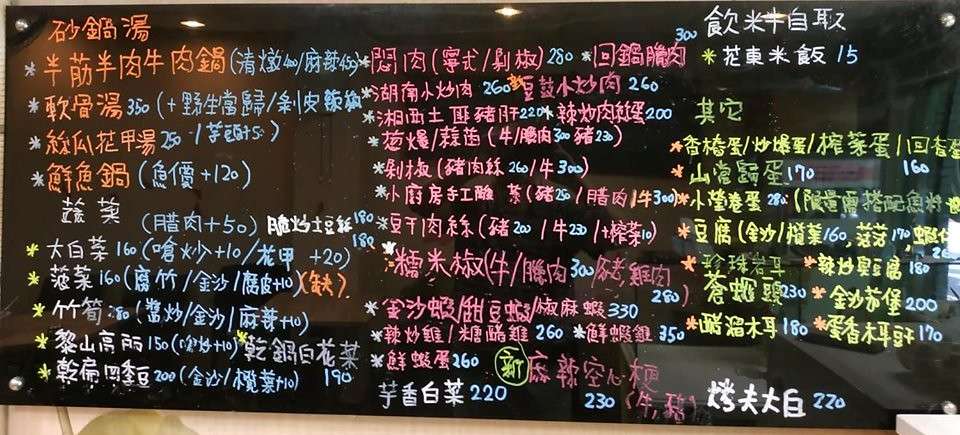 砂鍋湯
*半筋半肉牛肉鍋(清燉400/麻辣450)
*軟骨湯350(+野生當歸/剝皮辣椒
*絲瓜花甲湯250
*鮮魚鍋(魚價+120)
蔬菜(腊肉+50) 脆炒土豆絲180
*大白菜160(嗆炒+10/花甲+20)180
*菠菜160(腐竹/金沙/腐皮+10)(缺)
*竹筍180(醬炒/金沙/麻辣+10)
*黎山高麗150(嗆炒+10)
*乾鍋白花菜190
*乾扁四季豆200(金沙/欖菜+10)
*悶肉(寧式/剁椒)280 *回鍋臘肉300
*湖南小炒肉260 *豆鼓小炒肉260
*湘西土匪豬肝220 *辣炒肉絲蛋200
*葱爆/蒜苗(牛/臘肉300豬230)
*剁椒(豬肉絲260/牛300)
*小廚房手工酸菜(豬250/腊肉/牛300)
*豆干肉絲(豬200/牛230/+榨菜10)
*糯米椒(牛/臘肉300豬,雞肉280)
*金沙蝦/甜豆蝦/椒麻蝦330
*辣炒雞/糖醋雞260 *鮮蝦雞350
*鮮蝦蛋260
新 麻辣空心梗230(牛,豬)
芋香白菜220
飲料自取
*花東米飯15
其它
*香椿蛋/炒爆蛋/榨菜蛋/回香蛋160
*山當歸蛋170
*小瑩卷蛋280
*豆腐(金沙/欖菜160,
*珍珠岩耳 *辣炒臭豆腐180
蒼蠅頭230 *金沙茄堡200
*醋溜木耳180 *蛋香木耳170
烤夫大白220